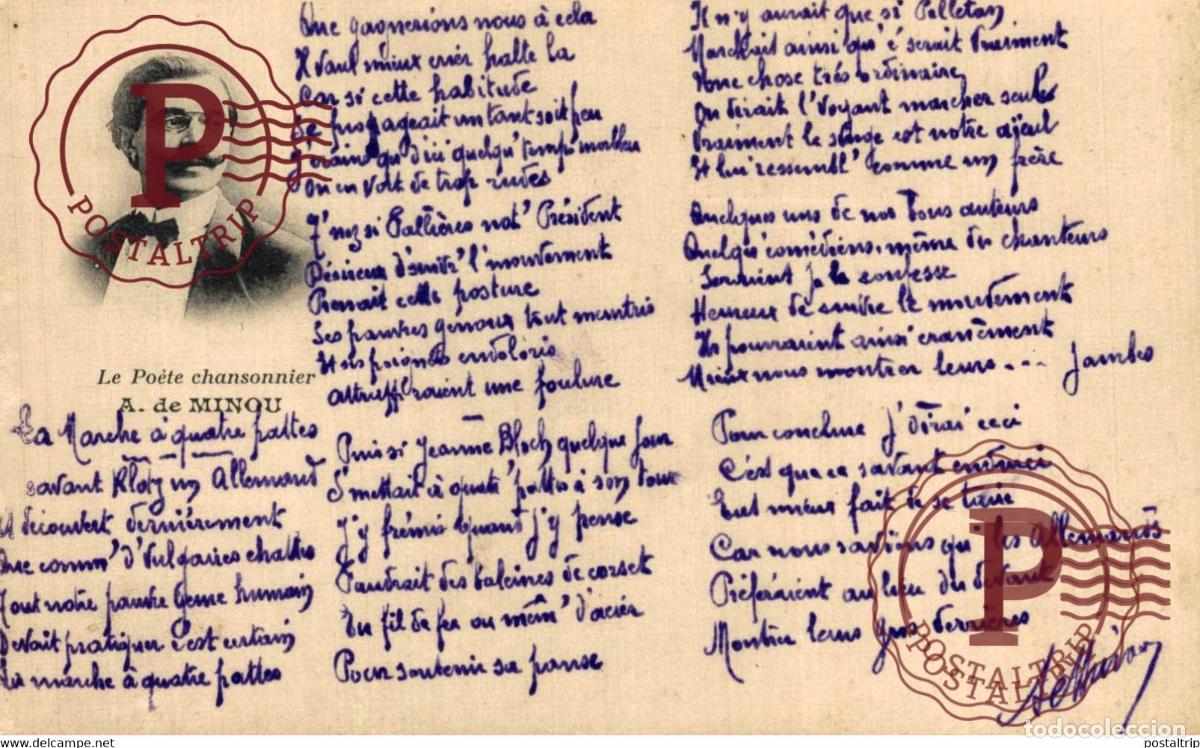 Le Poète chansonnier
A. de MINOU
La Marche à quatre pattes
savant Klotz un Allemand
A découvert dernièrement
Que comm' d'vulgaires chattes
Tout notre pauvre genre humain
Devait pratiquer c'est certain
La marche à quatre pattes
Que gagnerions nous à cela
Il vaut mieux crier halte là
Car si cette habitude
Se propageait un tant soit peu
J'crains qu'd'ici quelqu' temps morbleu
On en voit de trop rudes
T'nez si Fallières not' Président
Désireux d'suivr' l'mouvement
Prenait cette posture
Ses pauvres genoux tout meurtris
Et ses poignets endoloris
attrap'raient une foulure
Puis si Jeanne Bloch quelque jour
S'mettait à quatr' pattes à son tour
J'y frémis quand j'y pense
Faudrait des baleines de corset
Du fil de fer ou mêm' d'acier
Pour soutenir sa panse
Il n'y aurait que si Pelletan
Marchait ainsi qu'ça serait vraiment
Une chose très ordinaire
On dirait l'voyant marcher seul
Vraiment le singe est notre aïeul
Et lui ressembl' comme un frère
Quelques uns de nos bons auteurs
Quelqu' comédiens, même des chanteurs
Seraient je le confesse
Heureux de suivre le mouvement
Ils pourraient ainsi crânement
Mieux nous montrer leurs... Jambes
Pour conclure j'dirai ceci
C'est que ce savant
Eut mieux fait de se taire
Car nous savions qu' les Allemands
Préféraient au lieu du devant
Montrer leurs gros derrières
POSTALTRIP
POSTALTRIP
todocoleccion
https://www.delcampe.net
postaltrip